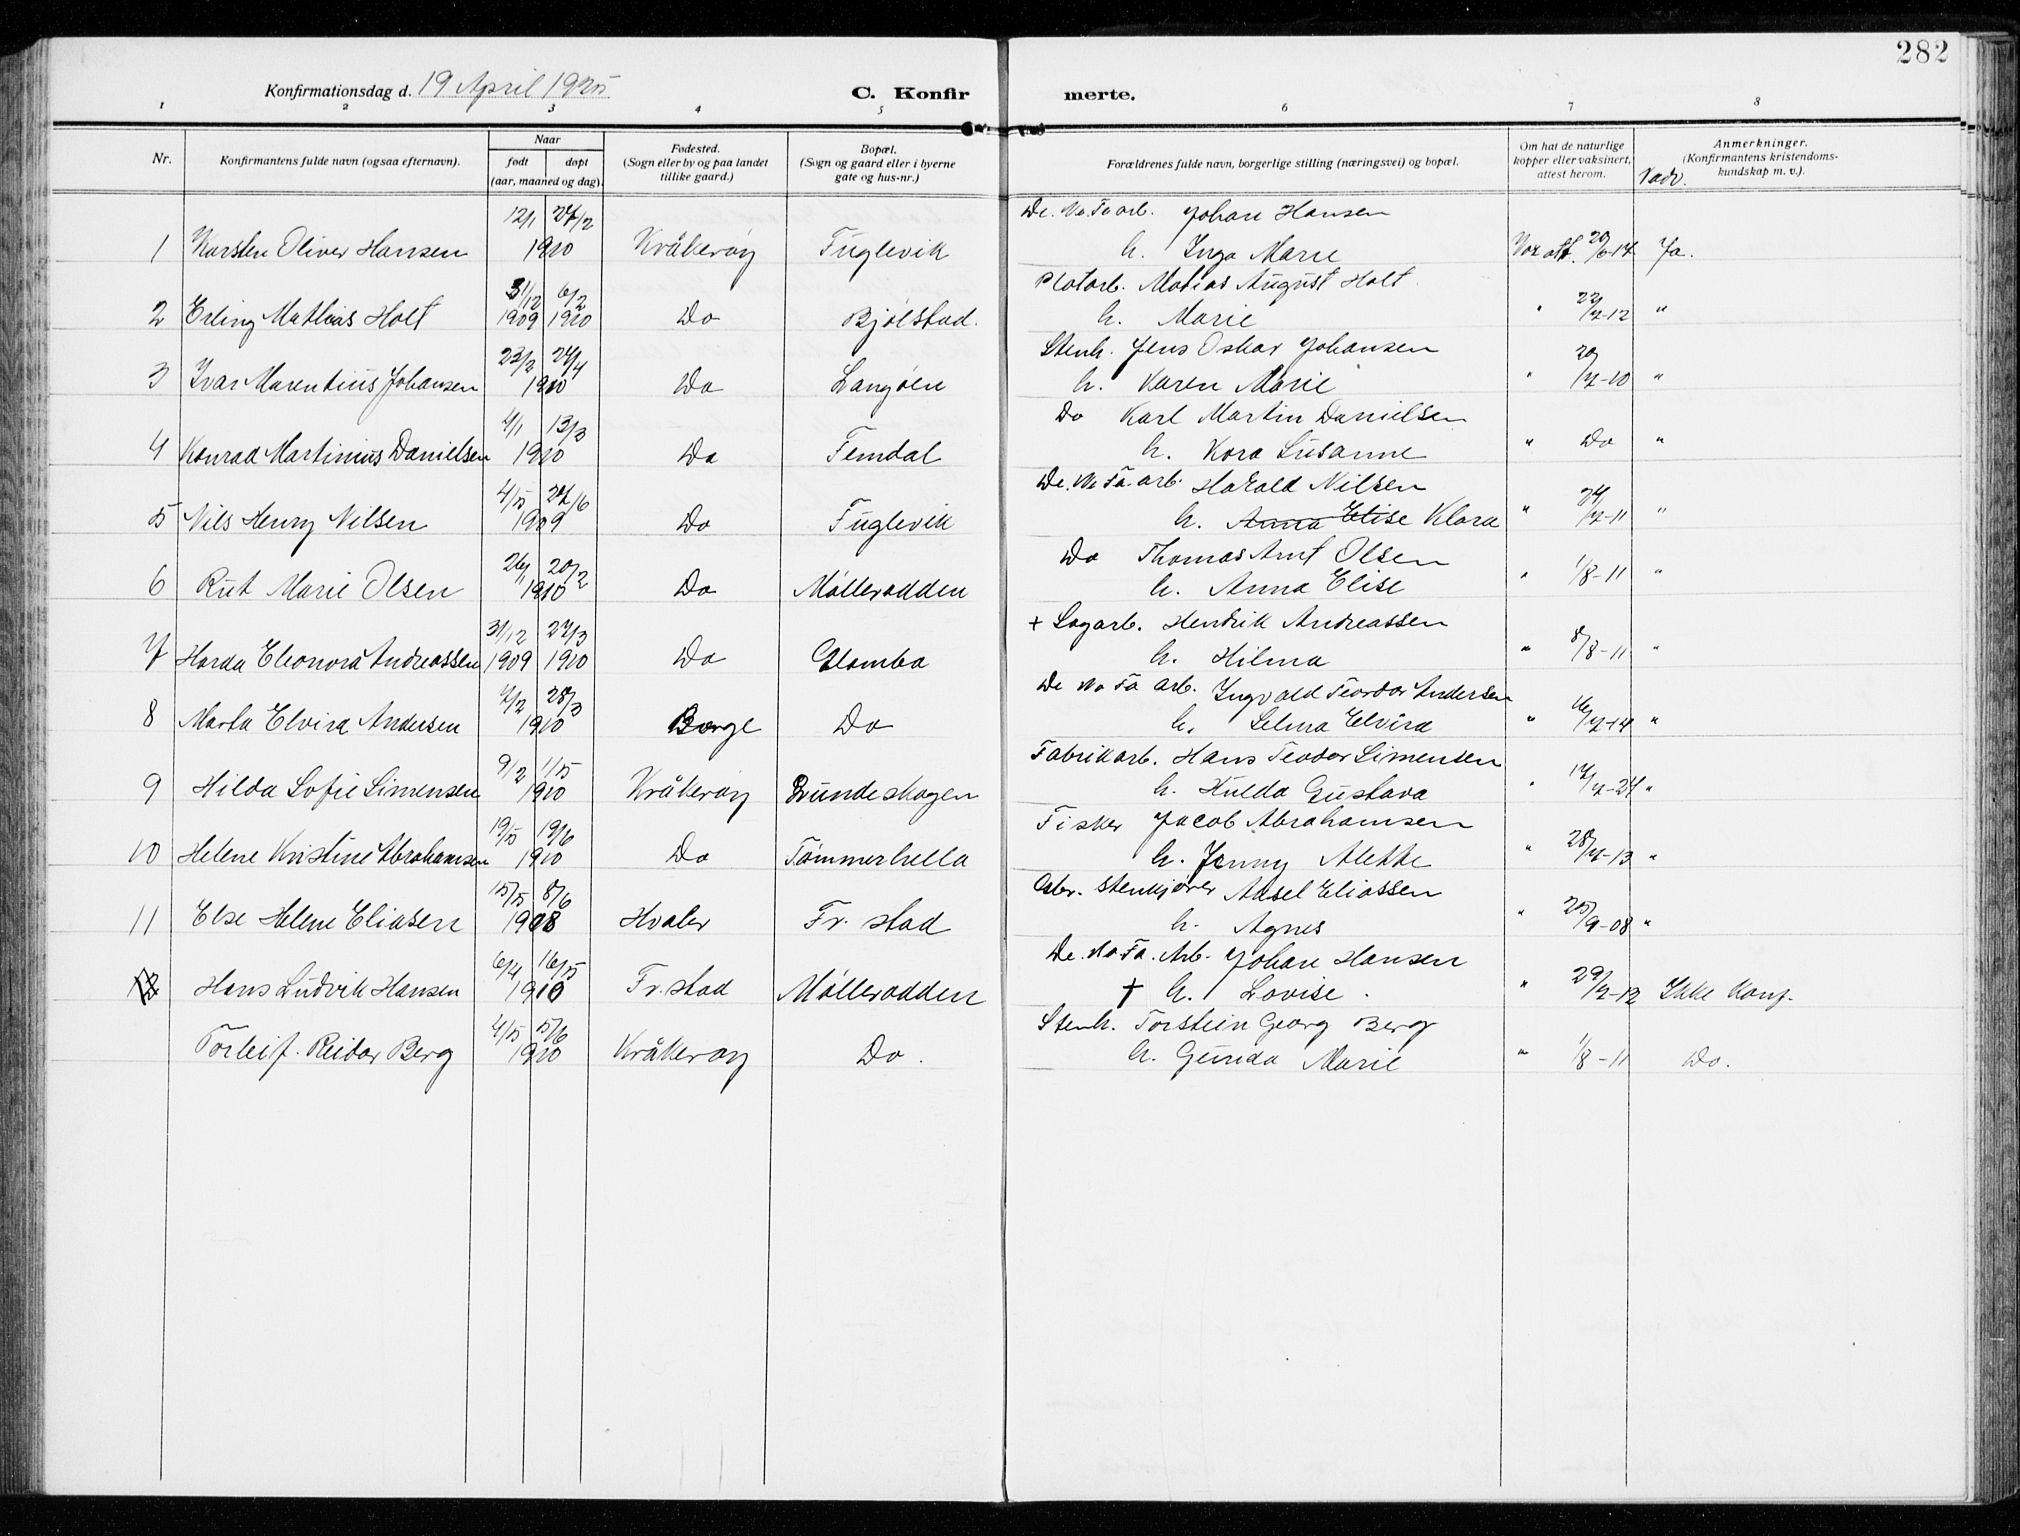 282
Konfirmationsdag d. 19 April 1925 C. Konfir merte.
1 2 3 4 5 6 7 8
Nr. Konfirmantens fulde navn (ogsaa efternavn). Naar født døpt (aar, maaned og dag). Fødested. (Sogn eller by og paa landet tillike gaard.) Bopæl. (Sogn og gaard eller i byerne gate og hus-nr.) Forældrenes fulde navn, borgerlige stilling (næringsvei) og bopæl. Om hat de naturlige kopper eller vaksinert, attest herom. Anmerkninger. (Konfirmantens kristendoms-kundskap m. v.).
12/1 27/2 De. No. Fa arb. Johan Hansen
1 Karsten Oliver Hansen 1910 Kråkerøy Fuglevik h. Inga Marie Vax att. 20/6-14 Ja.
31/12 6/2 Platarb. Matias August Holt
2 Erling Mathias Holt 1909 1910 Do Bjølstad. h. Marie " 22/7-12 "
23/2 24/4 Stenh. Jens Oskar Johansen
3 Ivar Marentius Johansen 1910 Do Langøen h. Karen Marie " 20/7-10 "
4/1 13/3 Do Karl Martin Danielsen
4 Konrad Martinius Danielsen 1910 Do Femdal h. Kora Susanne " Do "
4/5 27/6 De. No Fa. arb. Harald Nilsen
5 Nils Henry Nilsen 1909 Do Fuglevik h. Anna Elise Klara " 24/7-11 "
26/1 20/2 Do Thomas Arnt Olsen
6 Rut Marie Olsen 1910 Do Mølleradden h. Anna Elise " 1/8-11 "
31/12 27/3 + Sagarb. Hendrik Andreassen
7 Harda Eleonora Andreassen 1909 1910 Do Glomba h. Hilma " 8/8-11 "
7/2 28/3 De No Fa arb. Ingvald Teordor Andersen
8 Marta Elvira Andersen 1910 Borge Do h. Selma Elvira " 16/7-14 "
9/2 1/5 Fabrikarb. Hans Teodor Simensen
9 Hilda Sofie Simensen 1910 Kråkerøy Bundeskogen h. Hulda Gustava " 17/7-24 "
19/5 19/6 Fisker Jacob Abrahamsen
10 Helene Kristine Abrahamsen 1910 Do Tømmerhella h. Jenny Alette " 28/7-13 "
15/5 8/6 stenkjører Aksel Eliassen
11 Else Helene Eliasen 1908 Hvaler Fr. stad h. Agnes " 25/9-08 "
6/4 16/5 De. No Fa. Arb. Johan Hansen
12 Hans Ludvik Hansen 1910 Fr. stad Mølleradden + h. Lovise. " 29/7-12 Ikke Konf.
4/5 5/6 Stenh. Torstein Georg Berg
Torleif. Reidar Berg 1910 Kråkerøy Do. h. Gunda Marie " 1/8-11 Do.